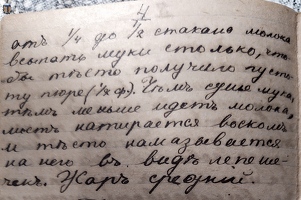 4
отъ 1/4 до 1/2 стакана молока
всыпать муки столько, что
бы тѣсто получило густо
ту пюре (1/8 ф). Чѣмъ суше мука,
тѣмъ меньше идетъ молока,
листъ натирается воскомъ
и тѣсто намазывается
на него въ видѣ лепеше-
чекъ. Жаръ средний.